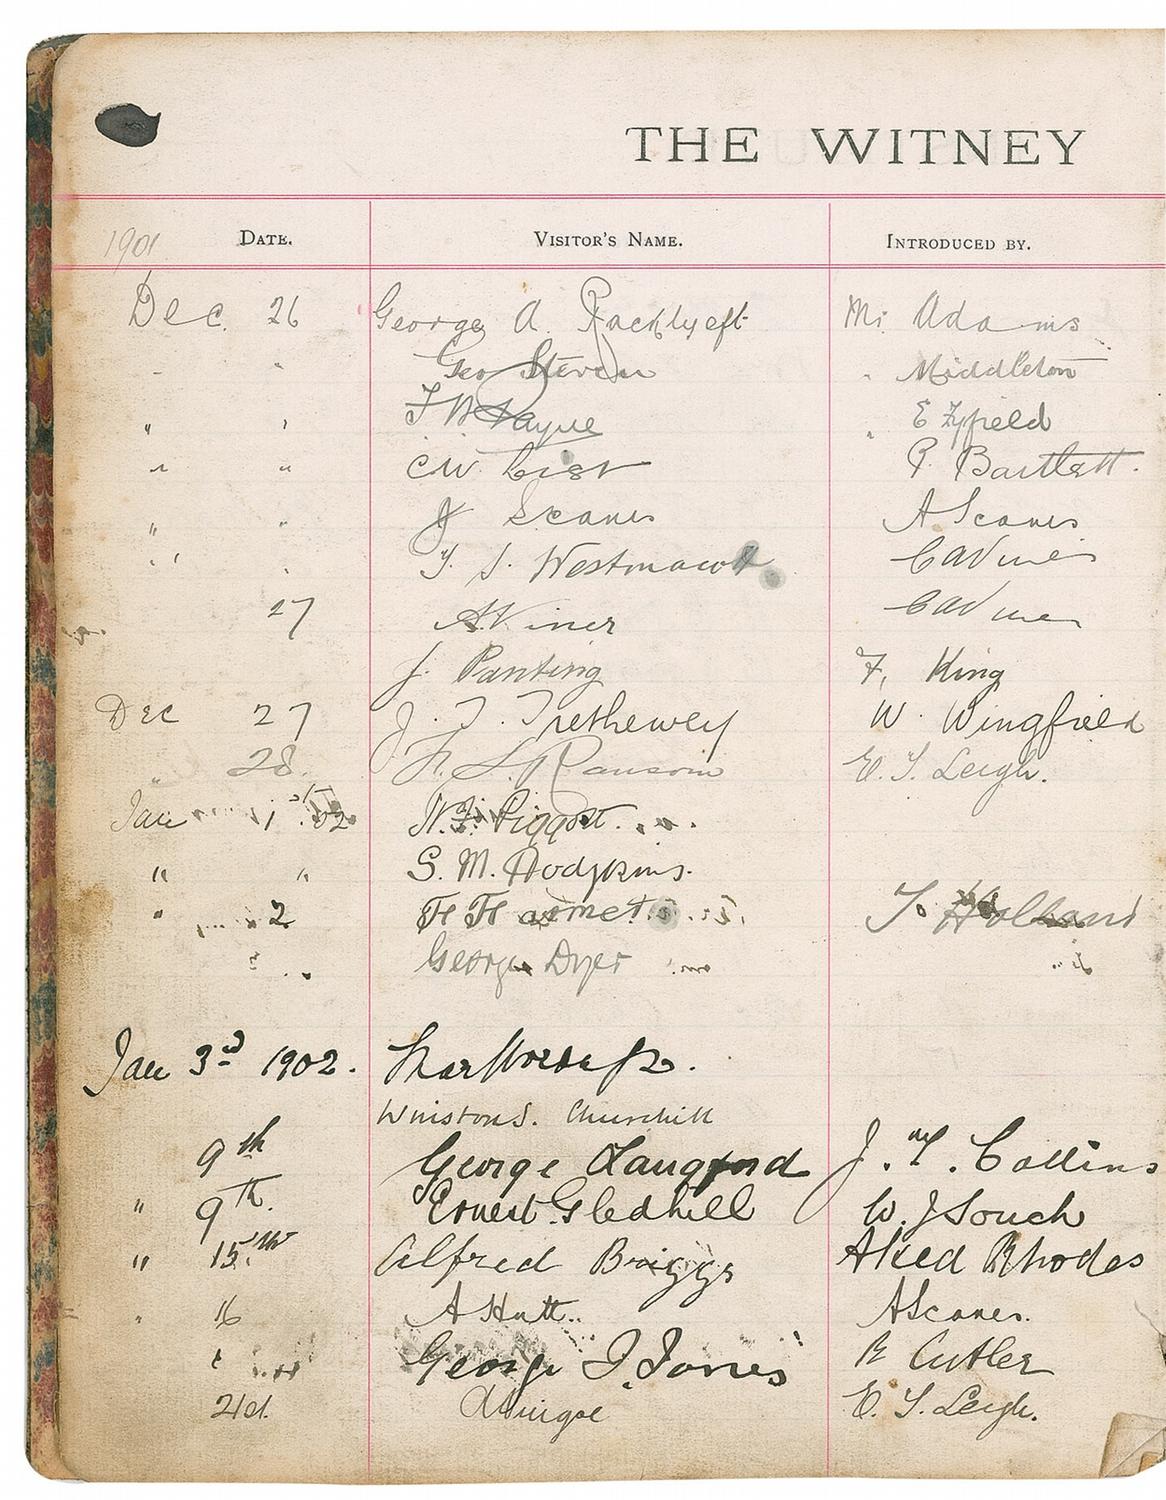 THE WITNEY
1901 DATE. VISITOR'S NAME. INTRODUCED BY.
Dec. 26 George A. Mr Adams
" " Geo Steven " Middleton
" " Payne " E Fyfield
" " C W List P. Bartlett.
" " J Scanes A Scanes
" " T. J.
27 A Viner
J. Panting F. King
Dec 27 J. T. Trethewey W. Wingfield
" 28. H. S. Ransom E. S. Leigh.
Jan 1st 02 W. F. Piggott.
" " S. M. Hodgkins.
" 2 H H T. Holland
George Dyer
Jan 3rd 1902.
Winston S. Churchill
9th George Langford J. Collins
" 9th. Ernest Gledhill W. J Souch
" 15th Alfred Briggs Aked Rhodes
" 16 A Hutt. A Scanes.
George J. Jones R Cutler
E. S. Leigh.